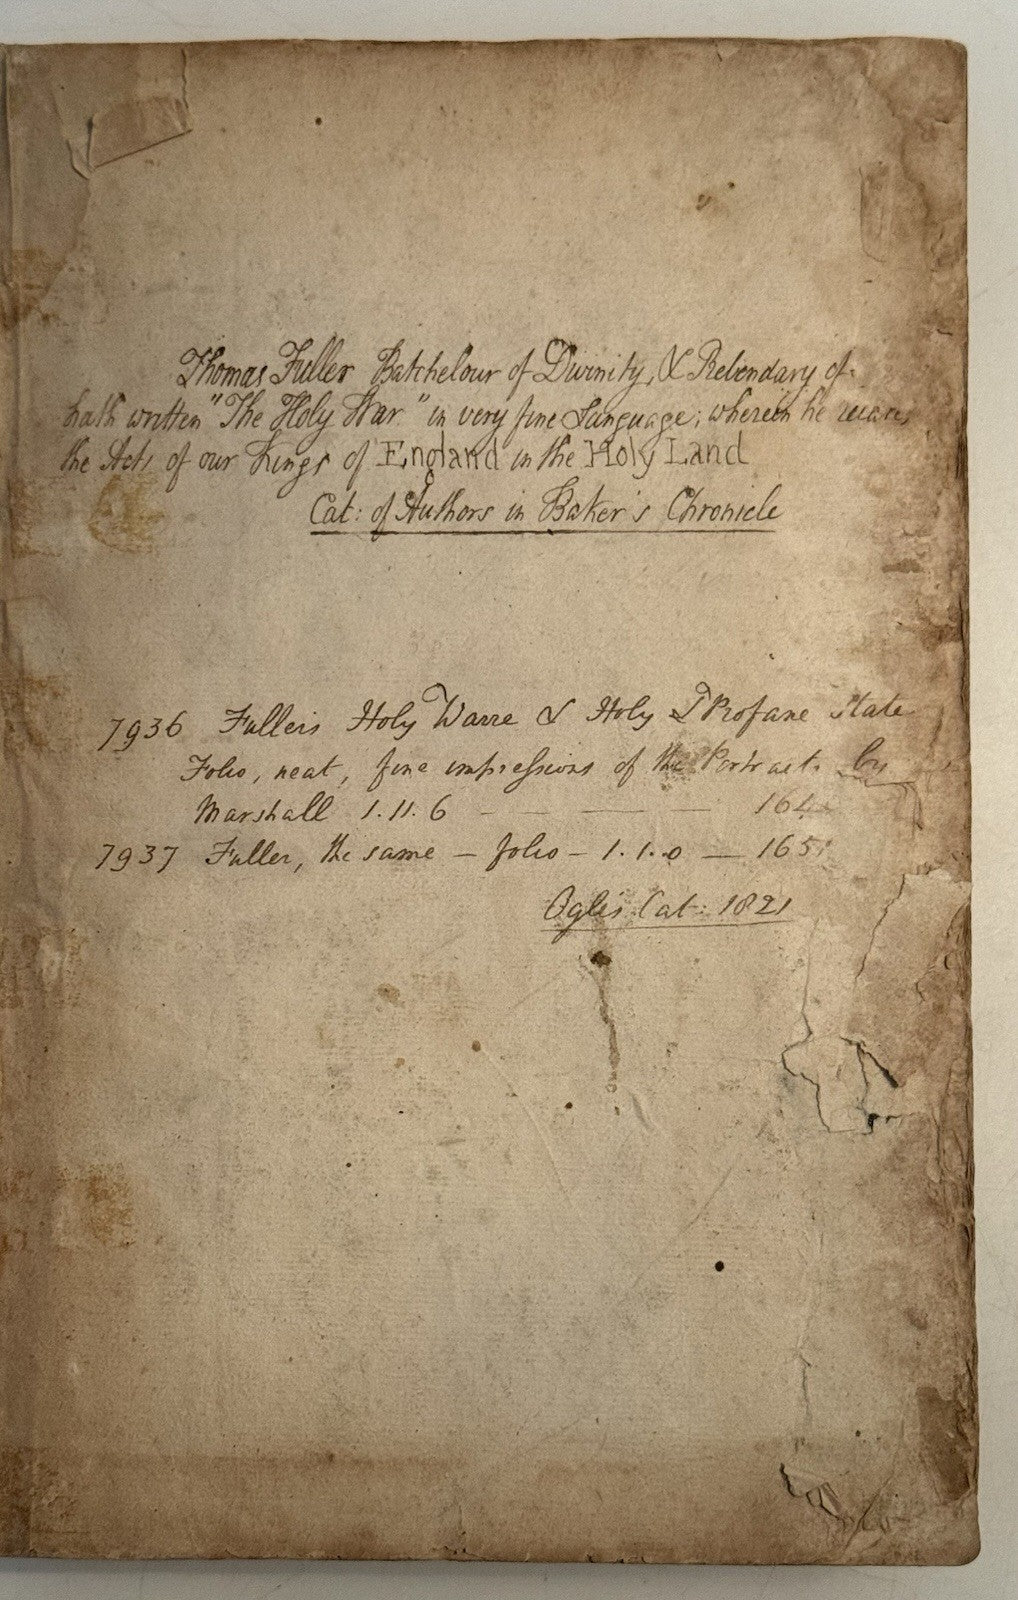 Thomas Fuller Batchelour of Divinity, & Prebendary of
hath written "The Holy War" in very fine Language; wherein he
the Acts of our Kings of England in the Holy Land
Cat: of Authors in Baker's Chronicle
7936 Fuller's Holy Warre & Holy & Profane State
Folio, neat, fine impressions of the Portraits by
Marshall 1.11.6 — — 164
7937 Fuller, the same — folio — 1.1.0 — 165
Ogle's Cat: 1821